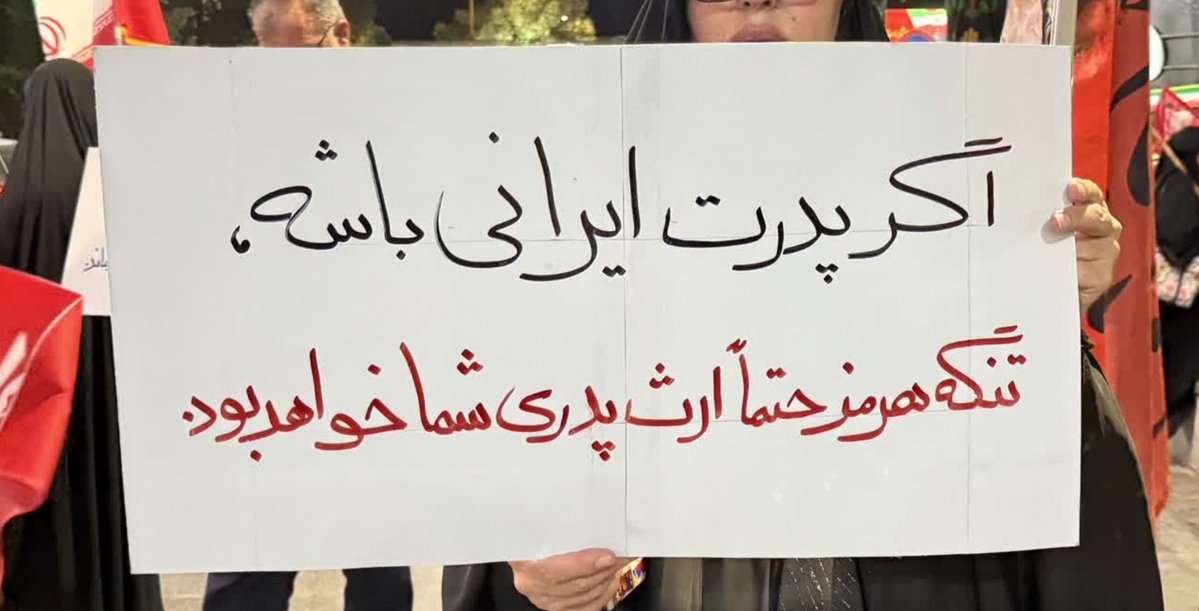 اگر پدرت ایرانی باشه،
تنگه هرمز حتماً ارث پدری شما خواهد بود.